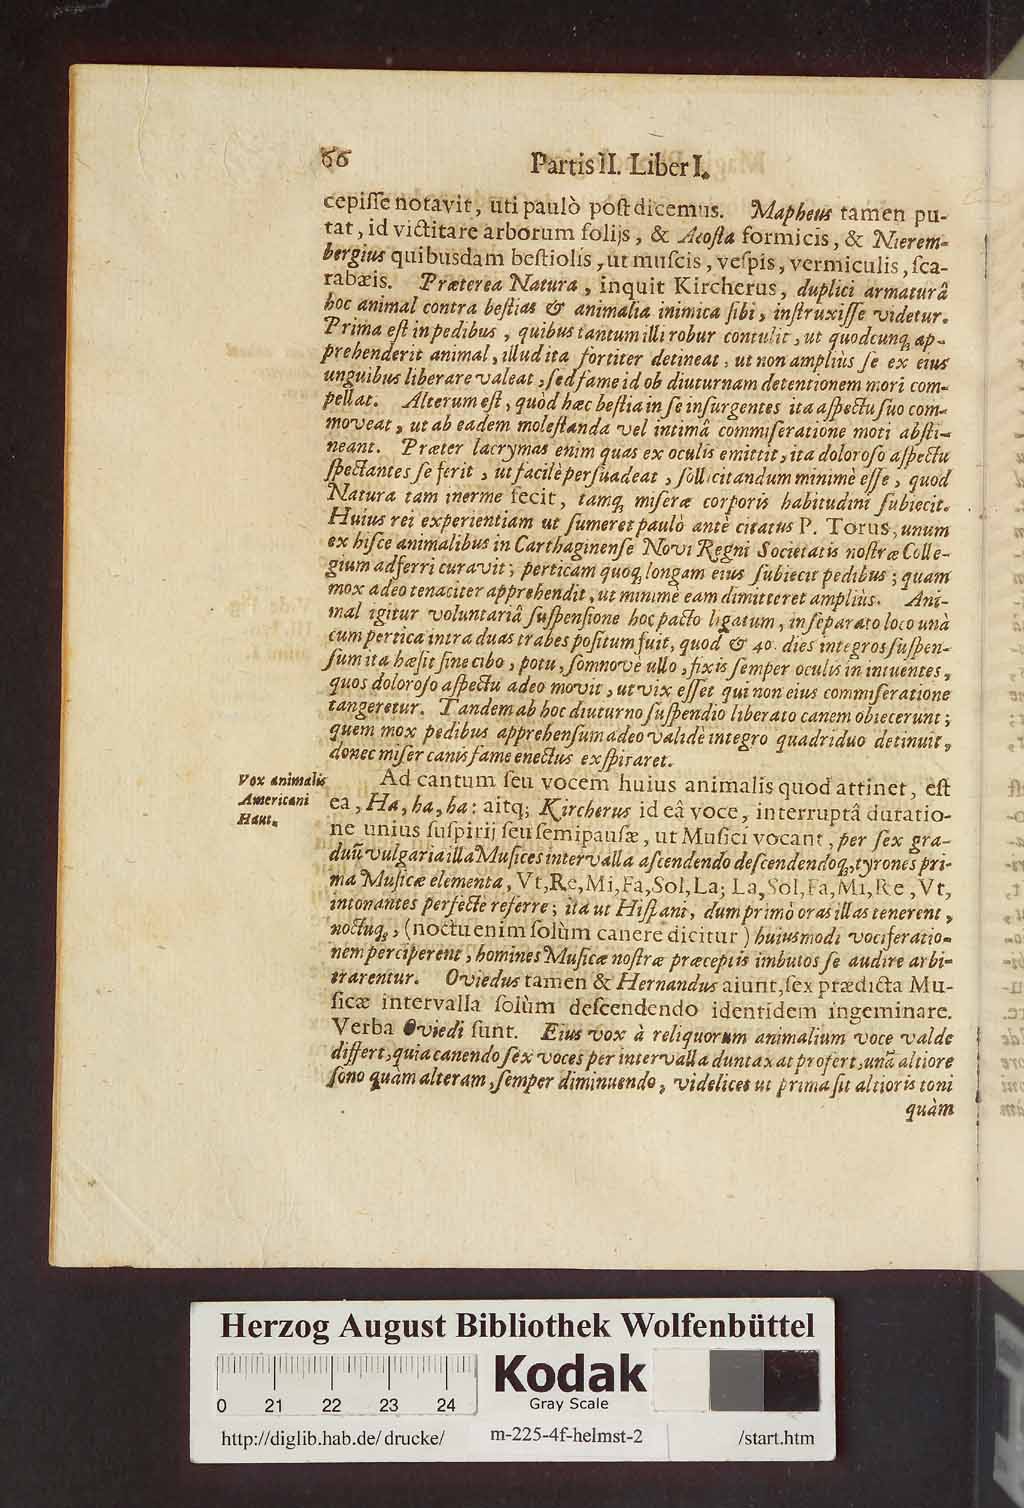 66
Partis II. Liber I.
cepiſſe notavit, uti paulò poſt dicemus. Mapheus tamen pu-
tat, id victitare arborum folijs, & Acoſta formicis, & Nierem-
bergius quibusdam beſtiolis, ut muſcis, veſpis, vermiculis, ſca-
rabæis. Præterea Natura, inquit Kircherus, duplici armaturâ
hoc animal contra beſtias & animalia inimica ſibi, inſtruxiſſe videtur.
Prima eſt in pedibus, quibus tantum illi robur contulit, ut quodcunq; ap-
prehenderit animal, illud ita fortiter detineat, ut non ampliùs ſe ex eius
unguibus liberare valeat, ſed fame id ob diuturnam detentionem mori com-
pellat. Alterum eſt, quòd hæc beſtia in ſe inſurgentes ita aſpectu ſuo com-
moveat, ut ab eadem moleſtanda vel intimâ commiſeratione moti abſti-
neant. Præter lacrymas enim quas ex oculis emittit, ita doloroſo aſpectu
ſpectantes ſe ferit, ut facilè perſuadeat, ſollicitandum minimè eſſe, quod
Natura tam inerme fecit, tamq; miſeræ corporis habitudini ſubiecit.
Huius rei experientiam ut ſumeret paulò antè citatus P. Torus, unum
ex hiſce animalibus in Carthaginenſe Novi Regni Societatis noſtræ Colle-
gium adferri curavit; perticam quoq; longam eius ſubiecit pedibus; quam
mox adeo tenaciter apprehendit, ut minimè eam dimitteret ampliùs. Ani-
mal igitur voluntariâ ſuſpenſione hoc pacto ligatum, in ſeparato loco unà
cum pertica intra duas trabes poſitum fuit, quod & 40. dies integros ſuſpen-
ſum ita hæſit ſine cibo, potu, ſomnove ullo, fixis ſemper oculis in intuentes,
quos doloroſo aſpectu adeo movit, ut vix eſſet qui non eius commiſeratione
tangeretur. Tandem ab hoc diuturno ſuſpendio liberato canem obiecerunt;
quem mox pedibus apprehenſum adeo validè integro quadriduo detinuit,
donec miſer canis fame enectus exſpiraret.
Vox animalis
Americani
Haut.
Ad cantum ſeu vocem huius animalis quod attinet, eſt
ea, Ha, ha, ha: aitq; Kircherus id eâ voce, interruptâ duratio-
ne unius ſuſpirij ſeu ſemipauſæ, ut Muſici vocant, per ſex gra-
duū vulgaria illa Muſices intervalla aſcendendo deſcendendoq;, tyrones pri-
ma Muſicæ elementa, Vt, Re, Mi, Fa, Sol, La; La, Sol, Fa, Mi, Re, Vt,
intonantes perfectè referre; ita ut Hiſpani, dum primò oras illas tenerent,
noctuq;, (noctu enim ſolùm canere dicitur) huiusmodi vociferatio-
nem perciperent, homines Muſicæ noſtræ præceptis imbutos ſe audire arbi-
trarentur. Oviedus tamen & Hernandus aiunt, ſex prædicta Mu-
ſicæ intervalla ſolùm deſcendendo identidem ingeminare.
Verba Oviedi ſunt. Eius vox à reliquorum animalium voce valde
differt, quia canendo ſex voces per intervalla duntaxat profert, unā altiore
ſono quàm alteram, ſemper diminuendo, videlicet ut prima ſit altioris toni
quàm
Herzog August Bibliothek Wolfenbüttel
0 21 22 23 24
Kodak
Gray Scale
http://diglib.hab.de/drucke/ m-225-4f-helmst-2 /start.htm